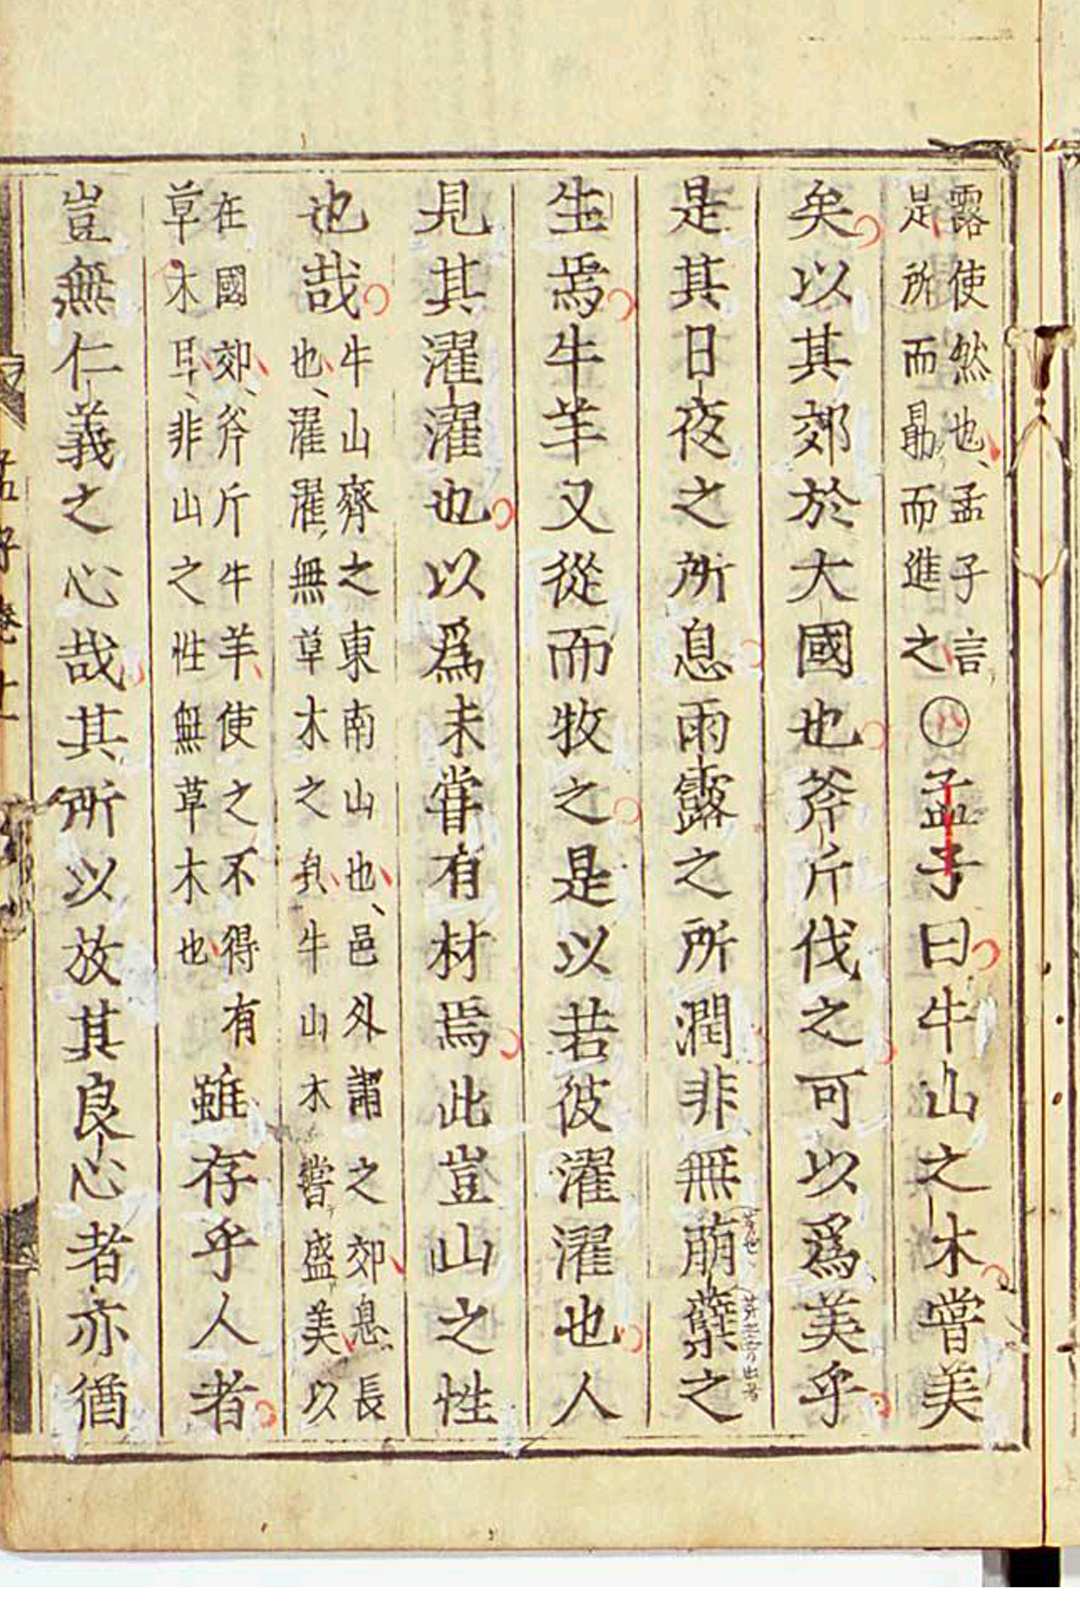 露使然也、孟子言
是所而勗而進之
○孟子曰牛山之木嘗美
矣以其郊於大國也斧斤伐之可以爲美乎
是其日夜之所息雨露之所潤非無萌蘖之
生焉牛羊又從而牧之是以若彼濯濯也人
見其濯濯也以爲未嘗有材焉此豈山之性
也哉
牛山齊之東南山也、邑外謂之郊息、長
也、濯濯無草木之皃牛山木嘗盛美以
在國郊、斧斤牛羊使之不得有
草木耳、非山之性無草木也
雖存乎人者
豈無仁義之心哉其所以放其良心者亦猶